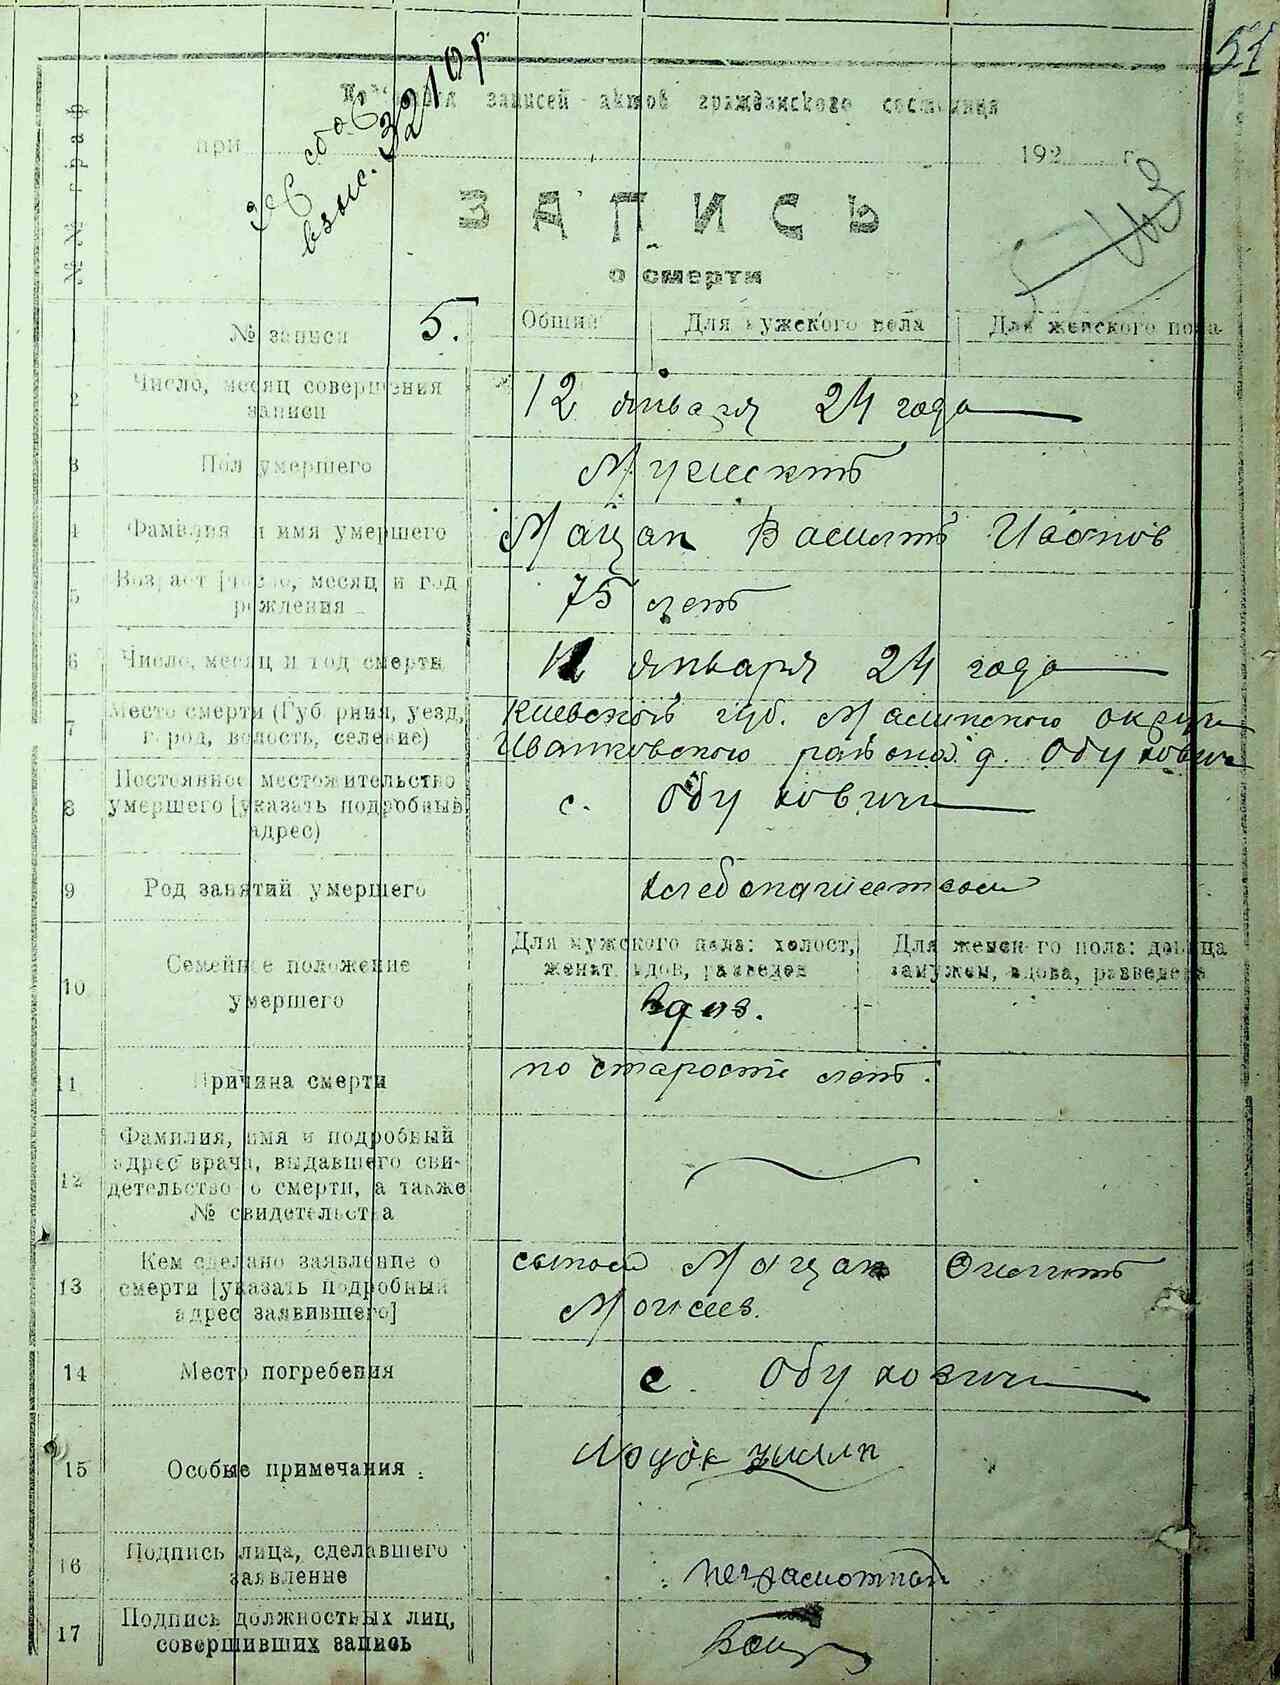 51
взыс. 3210р
записей актов гражданского состояния
при 192 г.
№№ граф
ЗАПИСЬ
о смерти
1 № записи 5. Общий Для мужского пола Для женского пола
2 Число, месяц совершения записи 12 января 24 года
3 Пол умершего Мужскъ
4 Фамилия и имя умершего Мацап Василъ Иванов
5 Возраст [число, месяц и год рождения 75 летъ
6 Число, месяц и год смерти января 24 года
7 Место смерти (Губерния, уезд, город, волость, селение) Киевской губ. Малинского округи
Иванковского района д. Обуховичи
8 Постоянное местожительство умершего [указать подробный адрес) с. Обуховичи
9 Род занятий умершего хлебопашеством
10 Семейное положение умершего
Для мужского пола: холост, женат, вдов, разведен
Для женского пола: девица замужем, вдова, разведена
вдов.
11 Причина смерти по старости летъ.
12 Фамилия, имя и подробный адрес врача, выдавшего свидетельство о смерти, а также № свидетельства
13 Кем сделано заявление о смерти [указать подробный адрес заявившего] сыном Мацап
Моисеев.
14 Место погребения с. Обуховичи
15 Особые примечания
16 Подпись лица, сделавшего заявление неграмотный
17 Подпись должностных лиц, совершивших запись